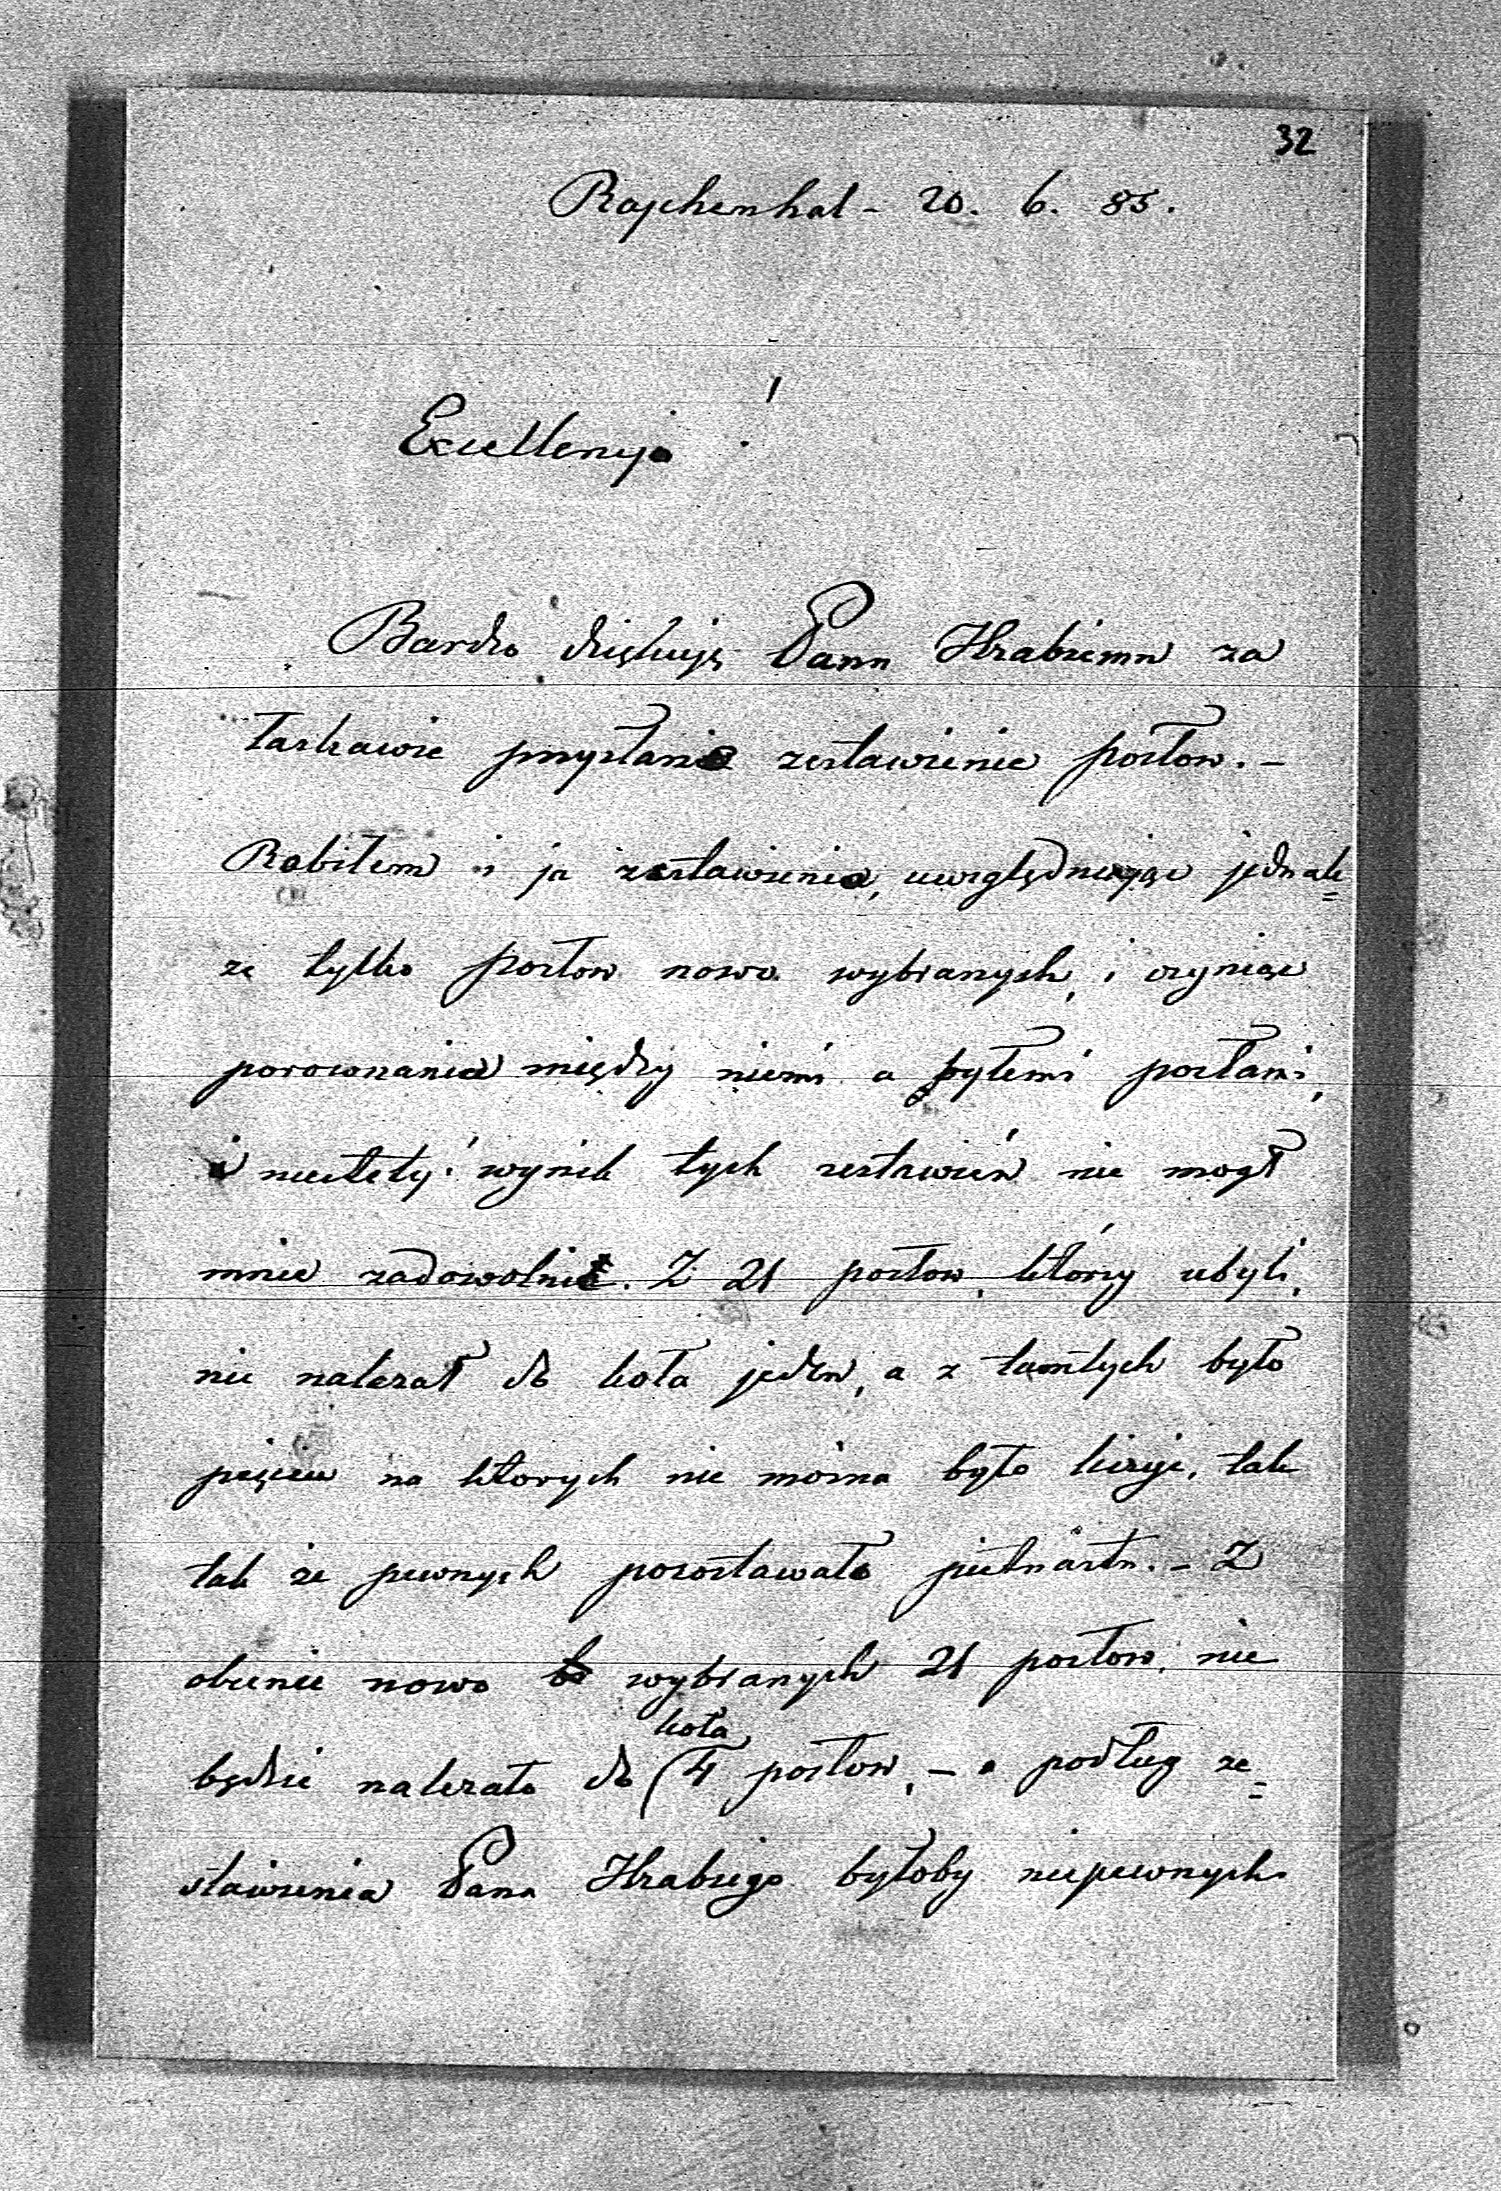 32
Rajchenhal - 20. 6. 85.
Excellencyo !
Bardzo dziękuję Panu Hrabiemu za
łaskawie przysłanie zestawienie posłow. -
Robiłem i ja zestawienie, uwzględniając jednak=
że tylko posłow nowo wybranych, i czyniąc
porownanie między niemi a byłemi posłami,
i niestety! wynik tych zestawień nie mogł
mnie zadowolnić. Z 21 posłow, którzy ubyli,
nie należał do koła jeden, a z tamtych było
pięciu na ktorych nie można było liczyć, tak
tak że pewnych pozostawało pietnastu. - Z
obecnie nowo wybranych 21 posłow, nie
koła
będzie należało do 4 posłow, - a podług ze=
stawienia Pana Hrabiego byłoby niepewnych